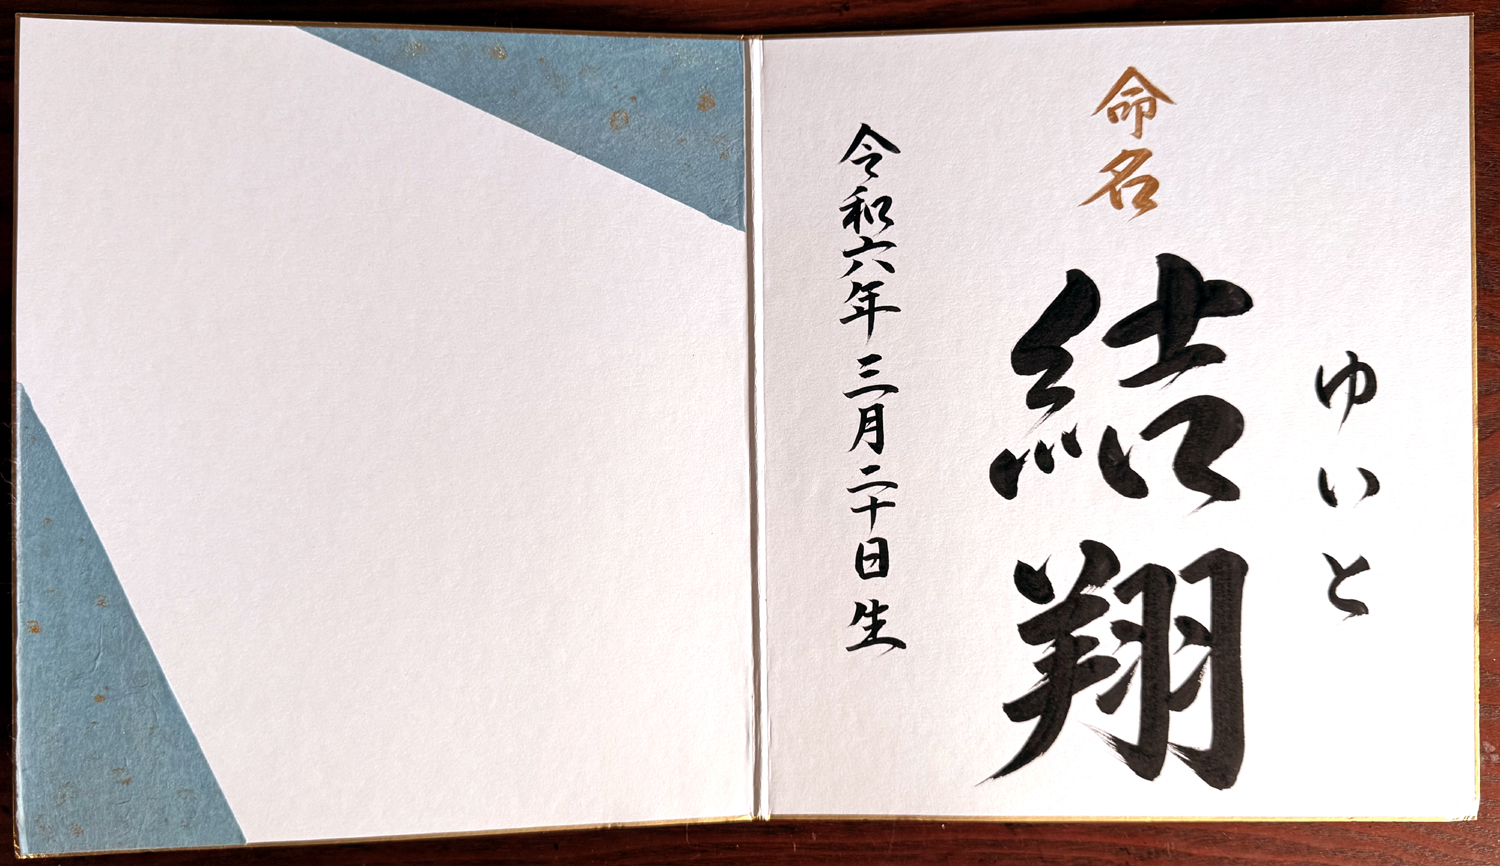 ゆいと
命名
結翔
令和六年三月二十日生